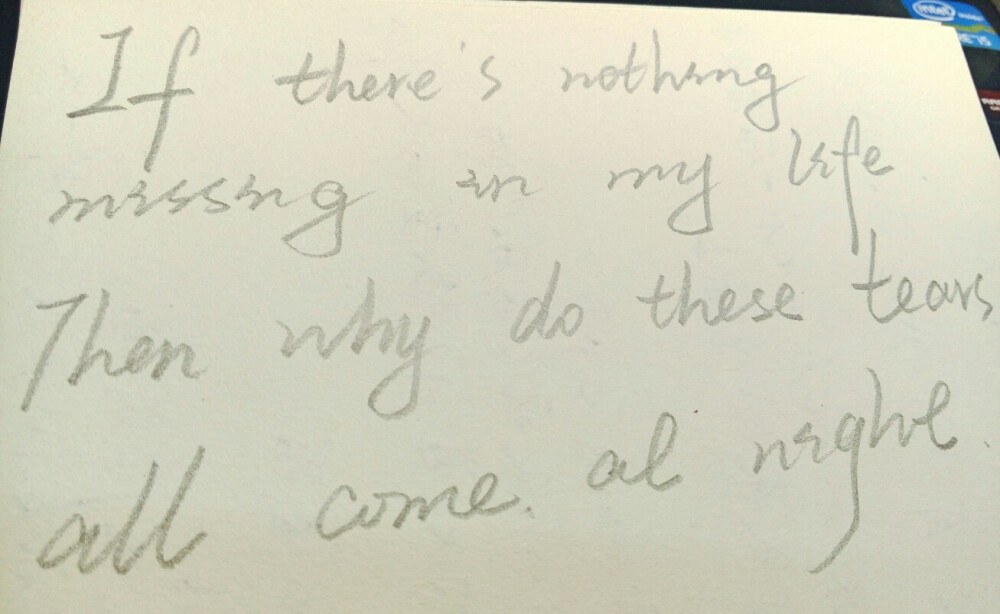 If there's nothing
missing in my life
Then why do these tears
all come at night.
intel
inside